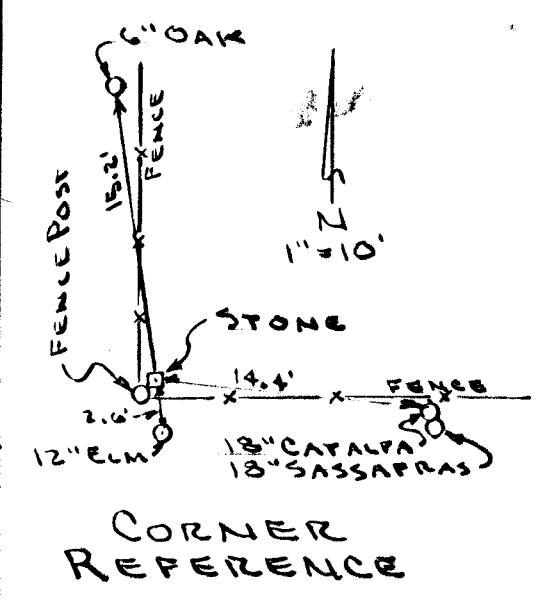 6" OAK
FENCE
15.2'
FENCE POST
N
1"=10'
STONE
14.4'
FENCE
2.6'
12" ELM
18" CATALPA
18" SASSAFRAS
CORNER
REFERENCE